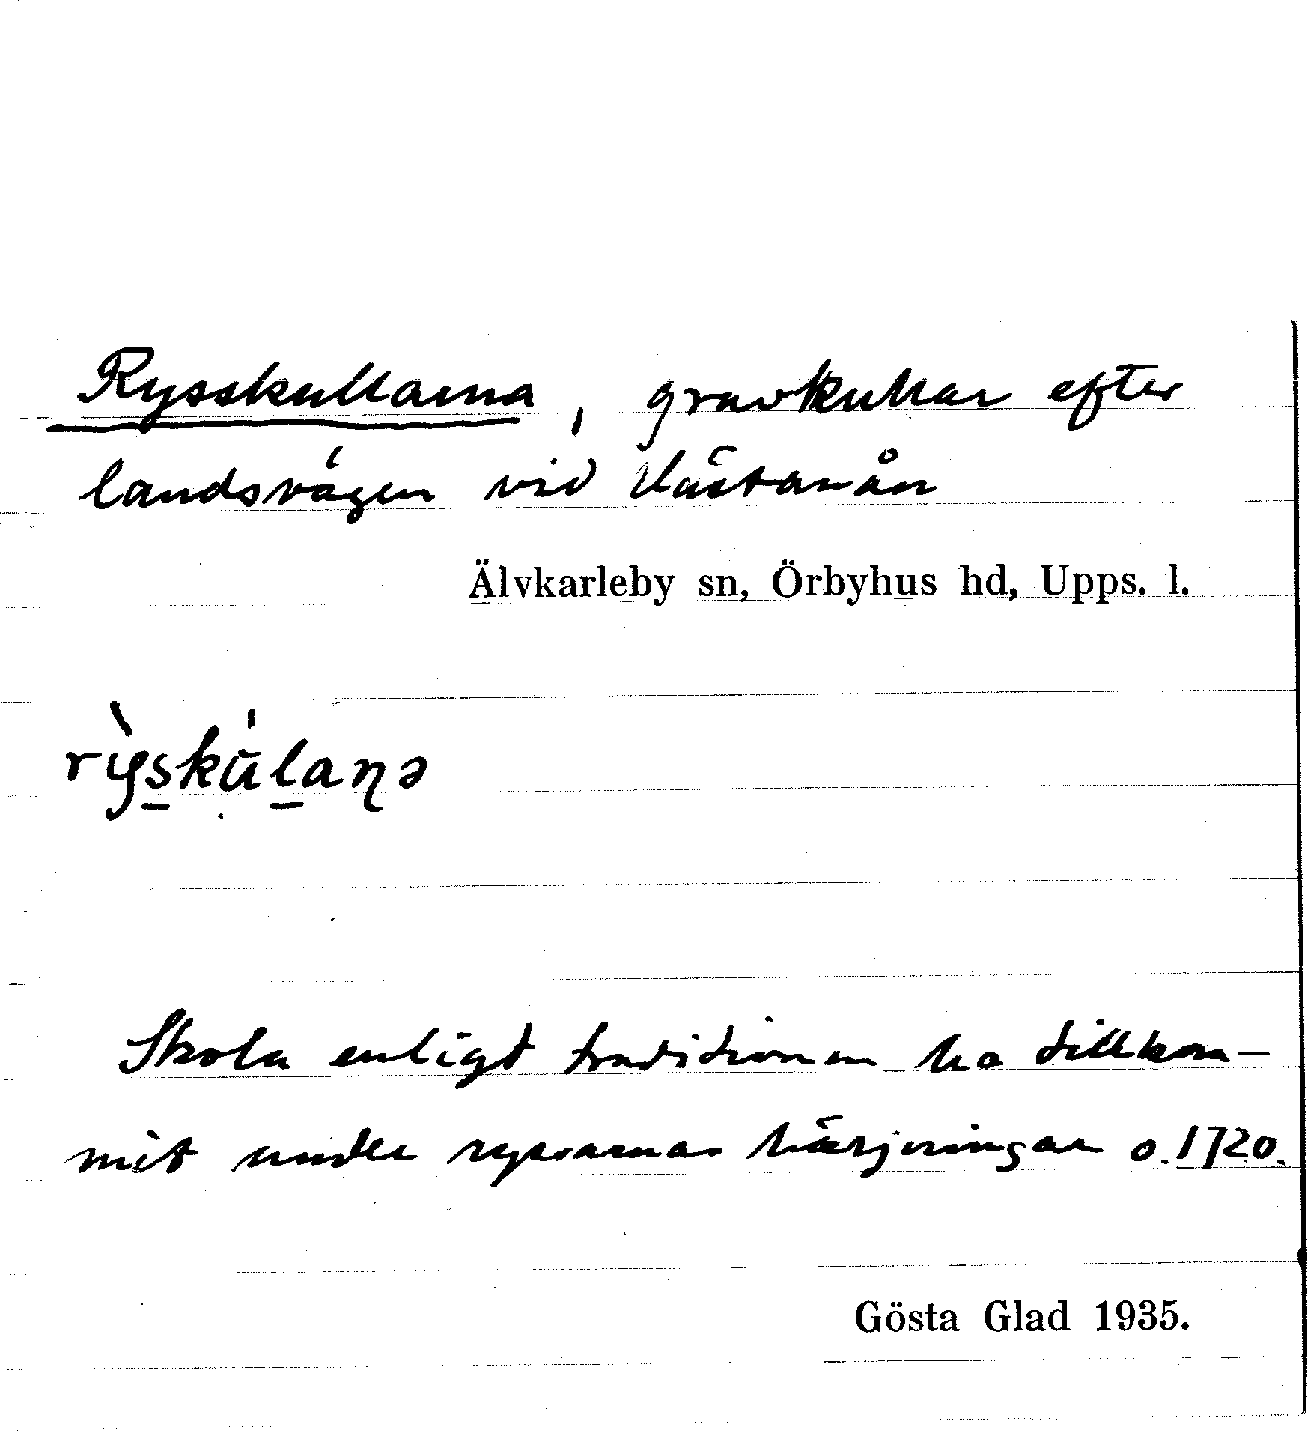 Rysskullarna, gravkullar efter
landsvägen vid Västanån
Älvkarleby sn, Örbyhus hd, Upps. l.
rỳskúlaɳə
Skola enligt traditionen ha tillkom-
mit under ryssarnas härjningar o. 1720.
Gösta Glad 1935.